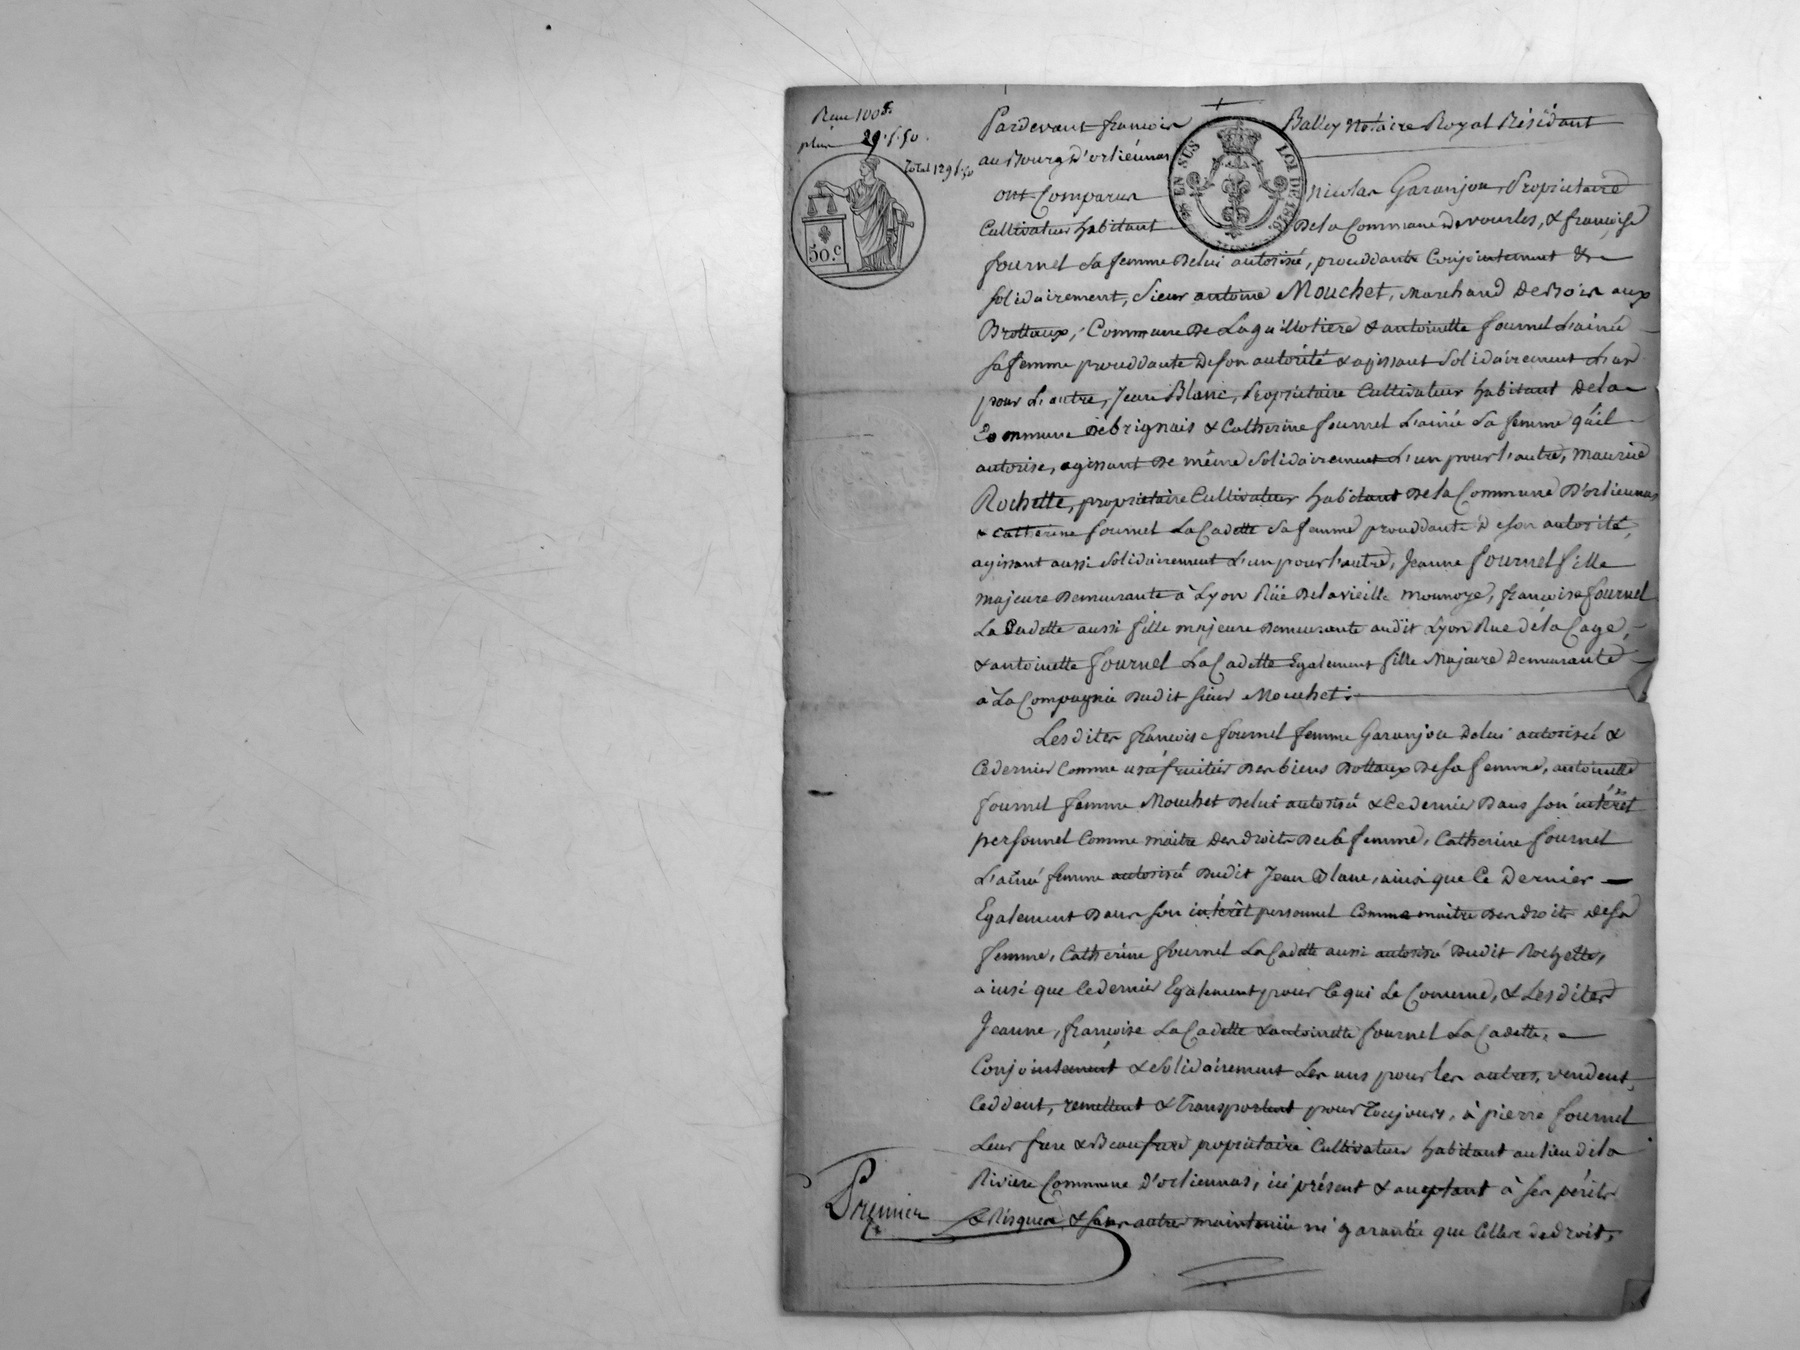 plus 29 f. 50
Total 129 f. 50
50. c
EN SUS LOI DE
Pardevant françois Balley Notaire Royal Résidant
au Bourg d'orliénas
ont Comparus nicolas Garanjou, Propriétaire
Cultivateur habitant De la Commune de vourles, & françoise
fournel sa femme de lui autorisée, procédante Conjointement &
solidairement, Sieur antoine Mouchet, Marchand De Bois aux
Brottaux, Commune De Laguillotiere & antoinette fournel L'ainée
sa femme procédante De son autorité & agissant Solidairement L'un
pour L'autre, Jean Blanc, Propriétaire Cultivateur habitant De la
Commune De brignais & Catherine fournel L'ainée Sa femme qu'il
autorise, agissant De même Solidairement L'un pour l'autre, maurice
Rochette, propriétaire Cultivateur habitant De la Commune D'orlienas
& catherine fournel La Cadette Sa femme procédante De son autorité,
agissant aussi Solidairement L'un pour l'autre, Jeanne fournel fille
majeure Demeurante à Lyon Rüe De la vieille monnoye, françoise fournel
La Cadette aussi fille majeure Demeurante audit Lyon Rue de la Cage,
& antoinette fournel La Cadette Egalement fille Majeure Demeurante
à La Compagnie Dudit Sieur Mouchet.
Les dites françoise fournel femme Garanjou De lui autorisée &
Ce dernier Comme usufruitier Des biens Dottaux De sa femme, antoinette
fournel femme Mouchet De lui autorisée & Ce dernier Dans son intérêt
personnel Comme maitre Des droits De sa femme, Catherine fournel
L'ainé femme autorisée Dudit Jean Blanc, ainsi que Ce Dernier
Egalement Dans Son intérêt personnel Comme maitre Des droits De sa
femme, Catherine fournel La Cadette aussi autorisée Dudit Rochette,
ainsi que Ce dernier Egalement pour Ce qui Le Concerne, & Les dites
Jeanne, françoise La Cadette & antoinette fournel La Cadette,
Conjointement & Solidairement Les uns pour les autres, vendent,
Ceddent, remettent & Transportent pour Toujours, à pierre fournel
Leur frere & Beaufrere propriétaire Cultivateur habitant au lieu de la
Riviere Commune D'orliennas, ici présent & acceptant à Ses périls
& Risques, & sans autre maintenüe ni garantie que Celle de droit,
Premier